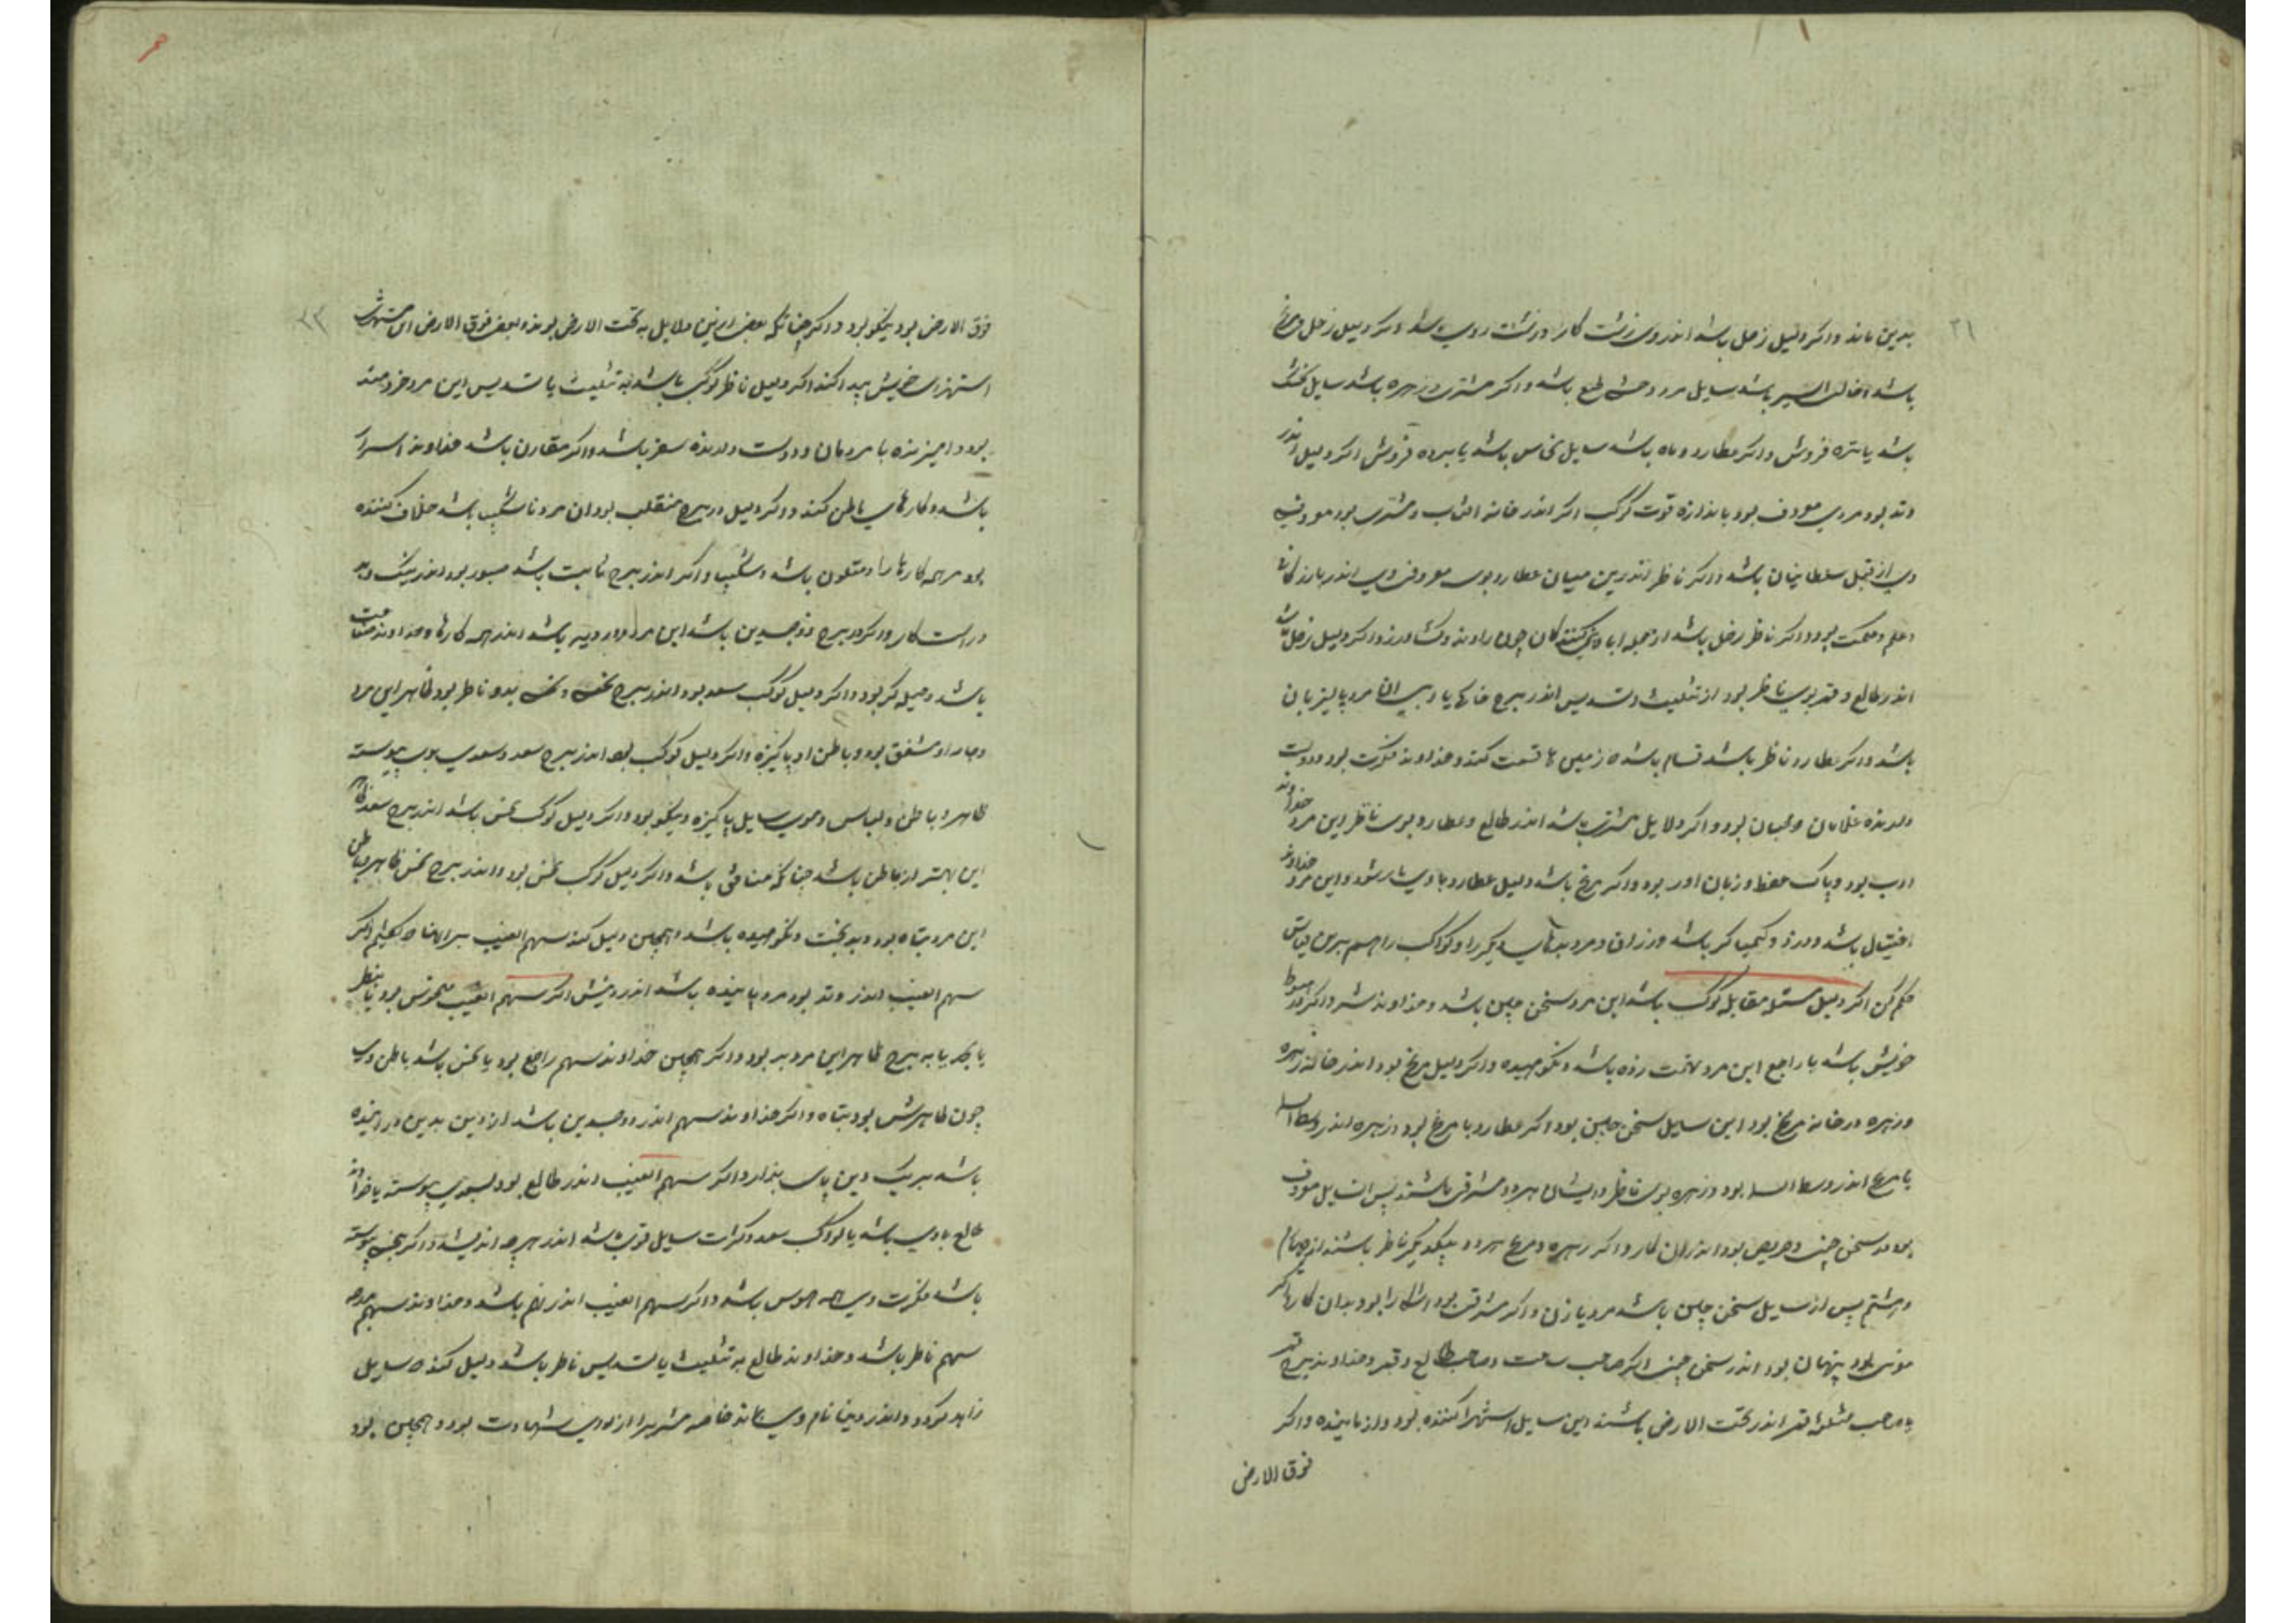 ۲۱
بدین ماند و اگر دلیل زحل باشد اندر وی زشت کار و زشت روی باشد و اگر دلیل زحل و مریخ
باشد سایل مرد وحشی طبع باشد و اگر مشتری و زهره باشد سایل
باشد یا تره فروش و اگر عطارد و ماه باشد سایل نخاس باشد یا برده فروش اگر دلیل اندر
وتد بود مردی معروف بود باندازه قوت کوکب اگر اندر خانه افتاب و مشتری بود معروفی
وی از قبل سلطانیان باشد و اگر ناظر اندرین میان عطارد بوی معروفی وی اندر بازرگانی
و علم و حکمت بود و اگر ناظر زحل باشد از جمله ابادانی کنندگان چون راوند و کشاورز و اگر دلیل زحل باشد
اندر طالع و قمر بوی ناظر بود از تثلیث و تسدیس اندر برج خاکی یا ابی این مرد پالیزبان
باشد و اگر عطارد ناظر باشد قسام باشد زمین ها قسمت کند و خداوند فکرت بود و دوست
دارنده غلامان و بود و اگر دلایل مشتری باشد اندر طالع و عطارد بوی ناظر این مرد خداوند
ادب بود و پاک لفظ و زبان اور بود و اگر مریخ باشد دلیل عطارد با وی یار شود و این مرد خداوند
باشد و دزد و کیمیاگر باشد و زراق و مرد یکدیگر را و کواکب را هم برین قیاس
حکم کن اگر دلیل مقابله کوکب باشد این مرد سخن چین باشد و خداوند شر و اگر در هبوط
خویش باشد یا راجع این مرد تهمت زده باشد و نکوهیده و اگر دلیل مریخ بود اندر خانه زهره
و زهره در خانه مریخ بود این سایل سخن چین بود اگر عطارد با مریخ بود و زهره اندر وسط السما
یا مریخ اندر وسط السما بود و زهره بوی ناظر و ایشان هر دو مشرقی باشند پس این سایل معروف
بود در سخن چینی و حریص بود اندران کار و اگر زهره و مریخ هر دو بیکدیگر ناظر باشند از چهارم
و هشتم پس این سایل سخن چین باشد مرد یا زن و اگر مشرقی بود اشکارا بود بدان کارها اگر
بود پنهان بود اندر سخن چینی اگر صاحب ساعت و صاحب طالع و قمر و خداوند برج قمر
و صاحب مثلثه قمر اندر تحت الارض باشند این سایل استهزا کننده بود و اگر
فوق الارض
۲۲
فوق الارض بود نیکو بود و اگر چنانکه بعضی ازین دلایل به تحت الارض بوند و بعضی فوق الارض این
استهزای خویش پیدا کند اگر دلیل ناظر کوکب باشد به تثلیث یا تسدیس این مرد خردمند
بود و امیزنده با مردمان و دوست دارنده سفر باشد و اگر مقارن باشد خداوند اسرار
باشد و کارهای باطن کند و اگر دلیل در برج منقلب بود ان مرد ناشکیب باشد خلاف کننده
بود مر همه کارها را و متلون باشد و اگر اندر برج ثابت باشد صبور بود اندر نیک و بد
و راست کار و اگر در برج ذوجسدین باشد این مرد باشد اندر همه کارها و خداوند
باشد و حیله گر بود و اگر دلیل کوکب سعد بود اندر برج نحس و نحسی بدو ناظر بود ظاهر این مرد
و مشفق بود و باطن او پاکیزه و اگر دلیل کوکب بود اندر برج سعد و سعدی بوی پیوسته
ظاهر و باطن و لباس و خوی سایل پاکیزه و نیکو بود و اگر دلیل کوکب نحس باشد اندر برج سعد ظاهر
این بهتر از باطن باشد چنانکه منافق باشد و اگر دلیل کوکب نحس بود و اندر برج نحس ظاهر و باطن
این مرد تباه بود و بدبخت و نکوهیده باشد و همچنین دلیل کند سهم الغیب
سهم الغیب اندر وتد بود مرد باشد اندر اگر سهم الغیب
برج ظاهر این مرد بد بود و اگر همچنین خداوند سهم راجع بود یا نحس باشد باطن وی
چون ظاهرش بود تباه و اگر خداوند سهم اندر ذوجسدین باشد از دین بدین
باشد بر یک دین پای ندارد و اگر سهم الغیب اندر طالع بود بسعدی پیوسته یا خداوند
طالع با وی باشد یا کوکب سعد سایل باشد اندر هر چه اندیشد و اگر بنحسی پیوسته
باشد فکرت وی همه هوس باشد و اگر سهم الغیب اندر نهم باشد و خداوند سهم
سهم ناظر باشد و خداوند طالع به تثلیث یا تسدیس ناظر باشد دلیل کند که سایل
زاهد گردد و اندر دین نام وی بماند خاصه مشتری را بود و همچنین بود